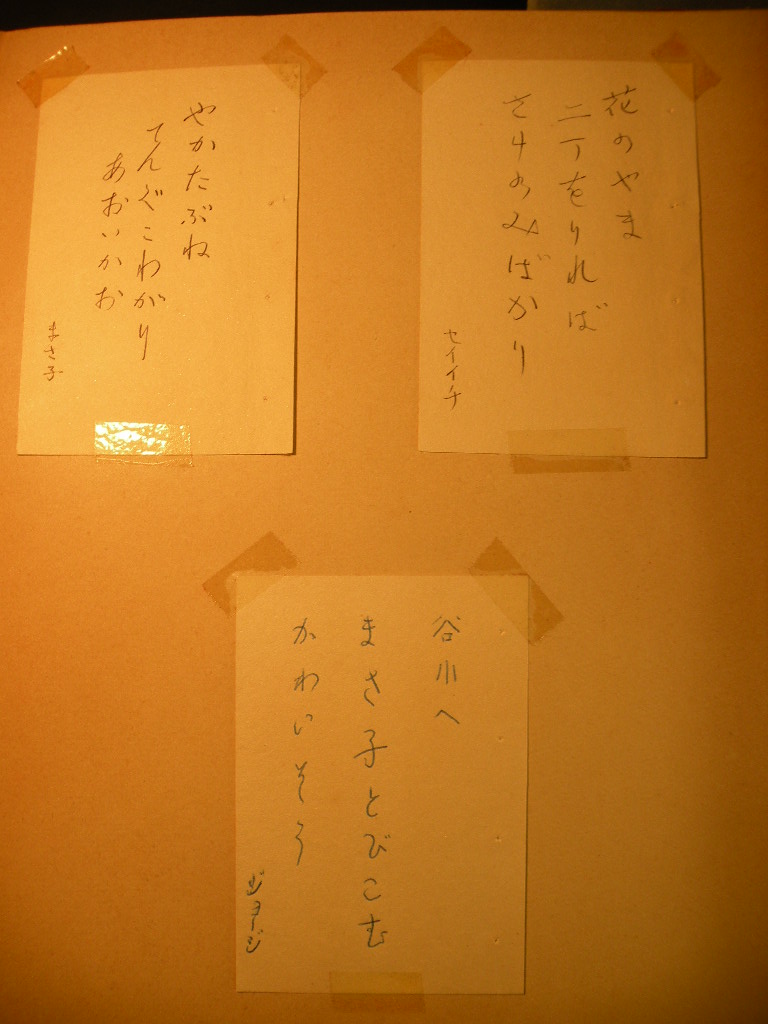 花のやま
二丁をりれば
さけのみばかり
セイイチ
やかたぶね
てんぐこわがり
あおいかお
まさ子
谷川へ
まさ子とびこむ
かわいそう
ジョージ